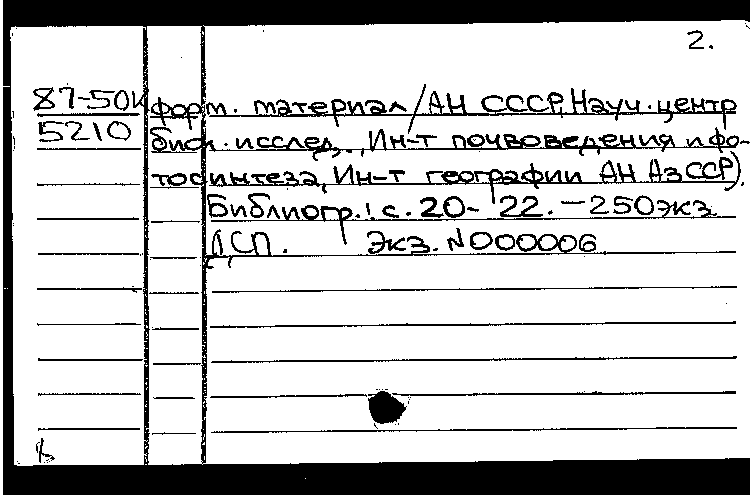 2.
87-50К форм. материал / АН СССР, Науч. центр
5210 биол. исслед., Ин-т почвоведения и фо-
тосинтеза, Ин-т географии АН АзССР).
Библиогр.: с. 20-22. - 250 экз.
ДСП. Экз. N000006